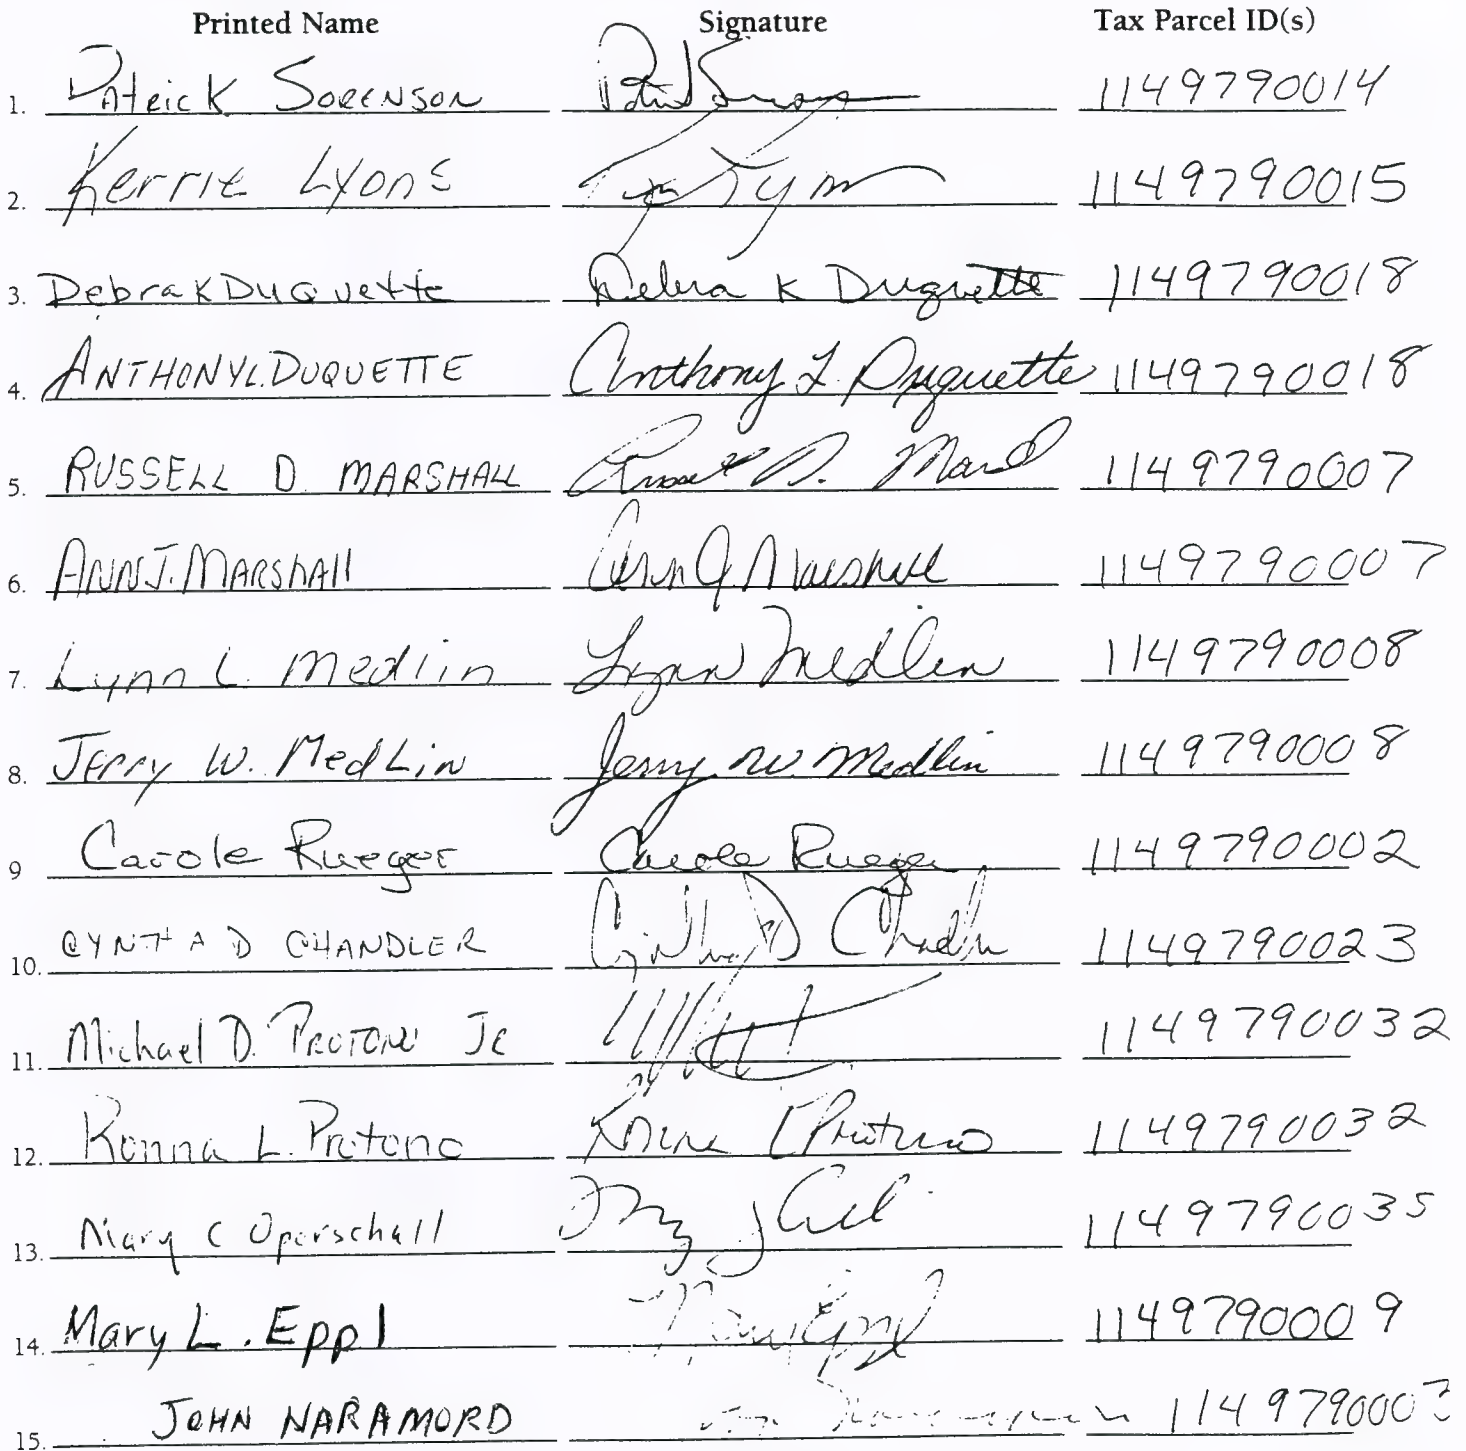 Printed Name Signature Tax Parcel ID(s)
1. Patrick Sorenson 1149790014
2. Kerrie Lyons 1149790015
3. Debra K Duquette Debra K Duquette 1149790018
4. ANTHONY L. DUQUETTE Anthony L. Duquette 1149790018
5. RUSSELL D MARSHALL Russell D. Marshall 1149790007
6. ANN J. MARSHAll Ann J. Marshall 1149790007
7. Lynn L. Medlin Lynn Medlin 1149790008
8. Jerry W. MedLin Jerry W. Medlin 1149790008
9 Carole Rueger Carole Rueger 1149790002
10. CYNTHIA D CHANDLER Cynthia D Chandler 1149790023
11. Michael D. PROTONO Jr 1149790032
12. Ronna L. Protono 1149790032
13. Mary C Operschall 1149790035
14. Mary L. Eppl Mary Eppl 1149790009
15. JOHN NARAMORD 114979000